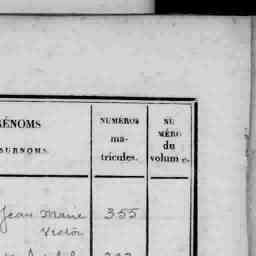 RÉNOMS
SURNOMS.
NUMÉROS
ma-
tricules.
NU
MÉRO
du
volume.
Jean Marie 355
Victor